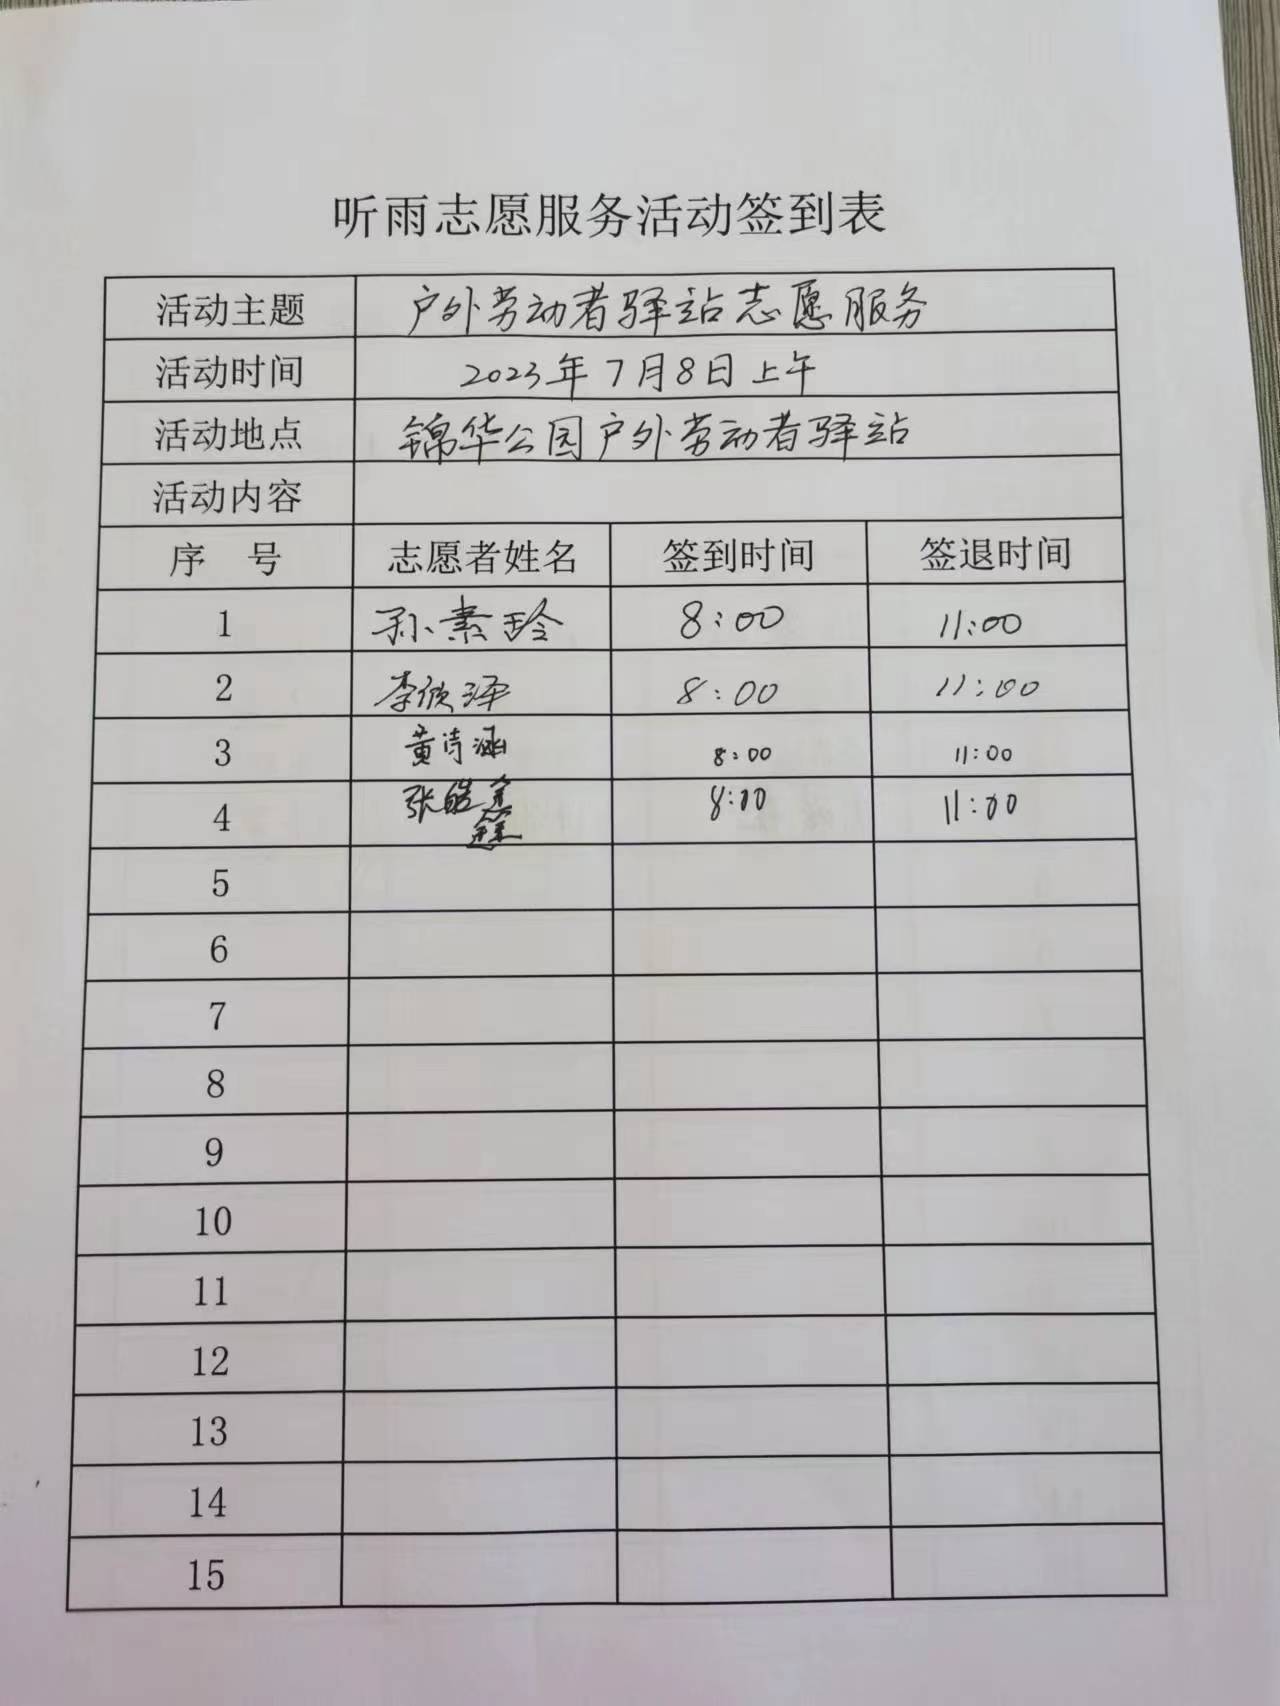 听雨志愿服务活动签到表
活动主题 户外劳动者驿站志愿服务
活动时间 2023年7月8日上午
活动地点 锦华公园户外劳动者驿站
活动内容
序 号 志愿者姓名 签到时间 签退时间
1 孙素玲 8:00 11:00
2 李欣泽 8:00 11:00
3 黄诗涵 8:00 11:00
4 张皓 8:00 11:00
5
6
7
8
9
10
11
12
13
14
15